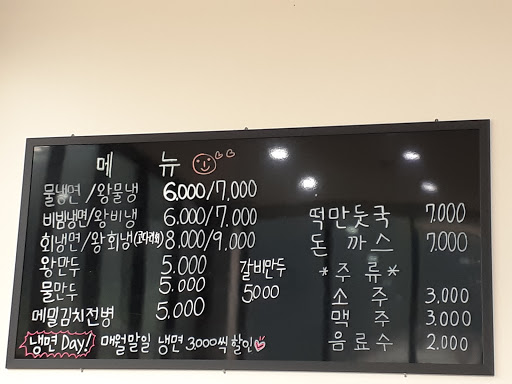 메 뉴
물냉면/왕물냉 6,000/7,000
비빔냉면/왕비냉 6,000/7,000
회냉면/왕회냉(코다리회) 8,000/9,000
왕만두 5.000
물만두 5.000
메밀김치전병 5,000
갈비만두
5000
냉면 Day! 매월말일 냉면 3,000씩 할인
떡만둣국 7,000
돈 까스 7,000
*주 류*
소 주 3,000
맥 주 3.000
음료수 2.000